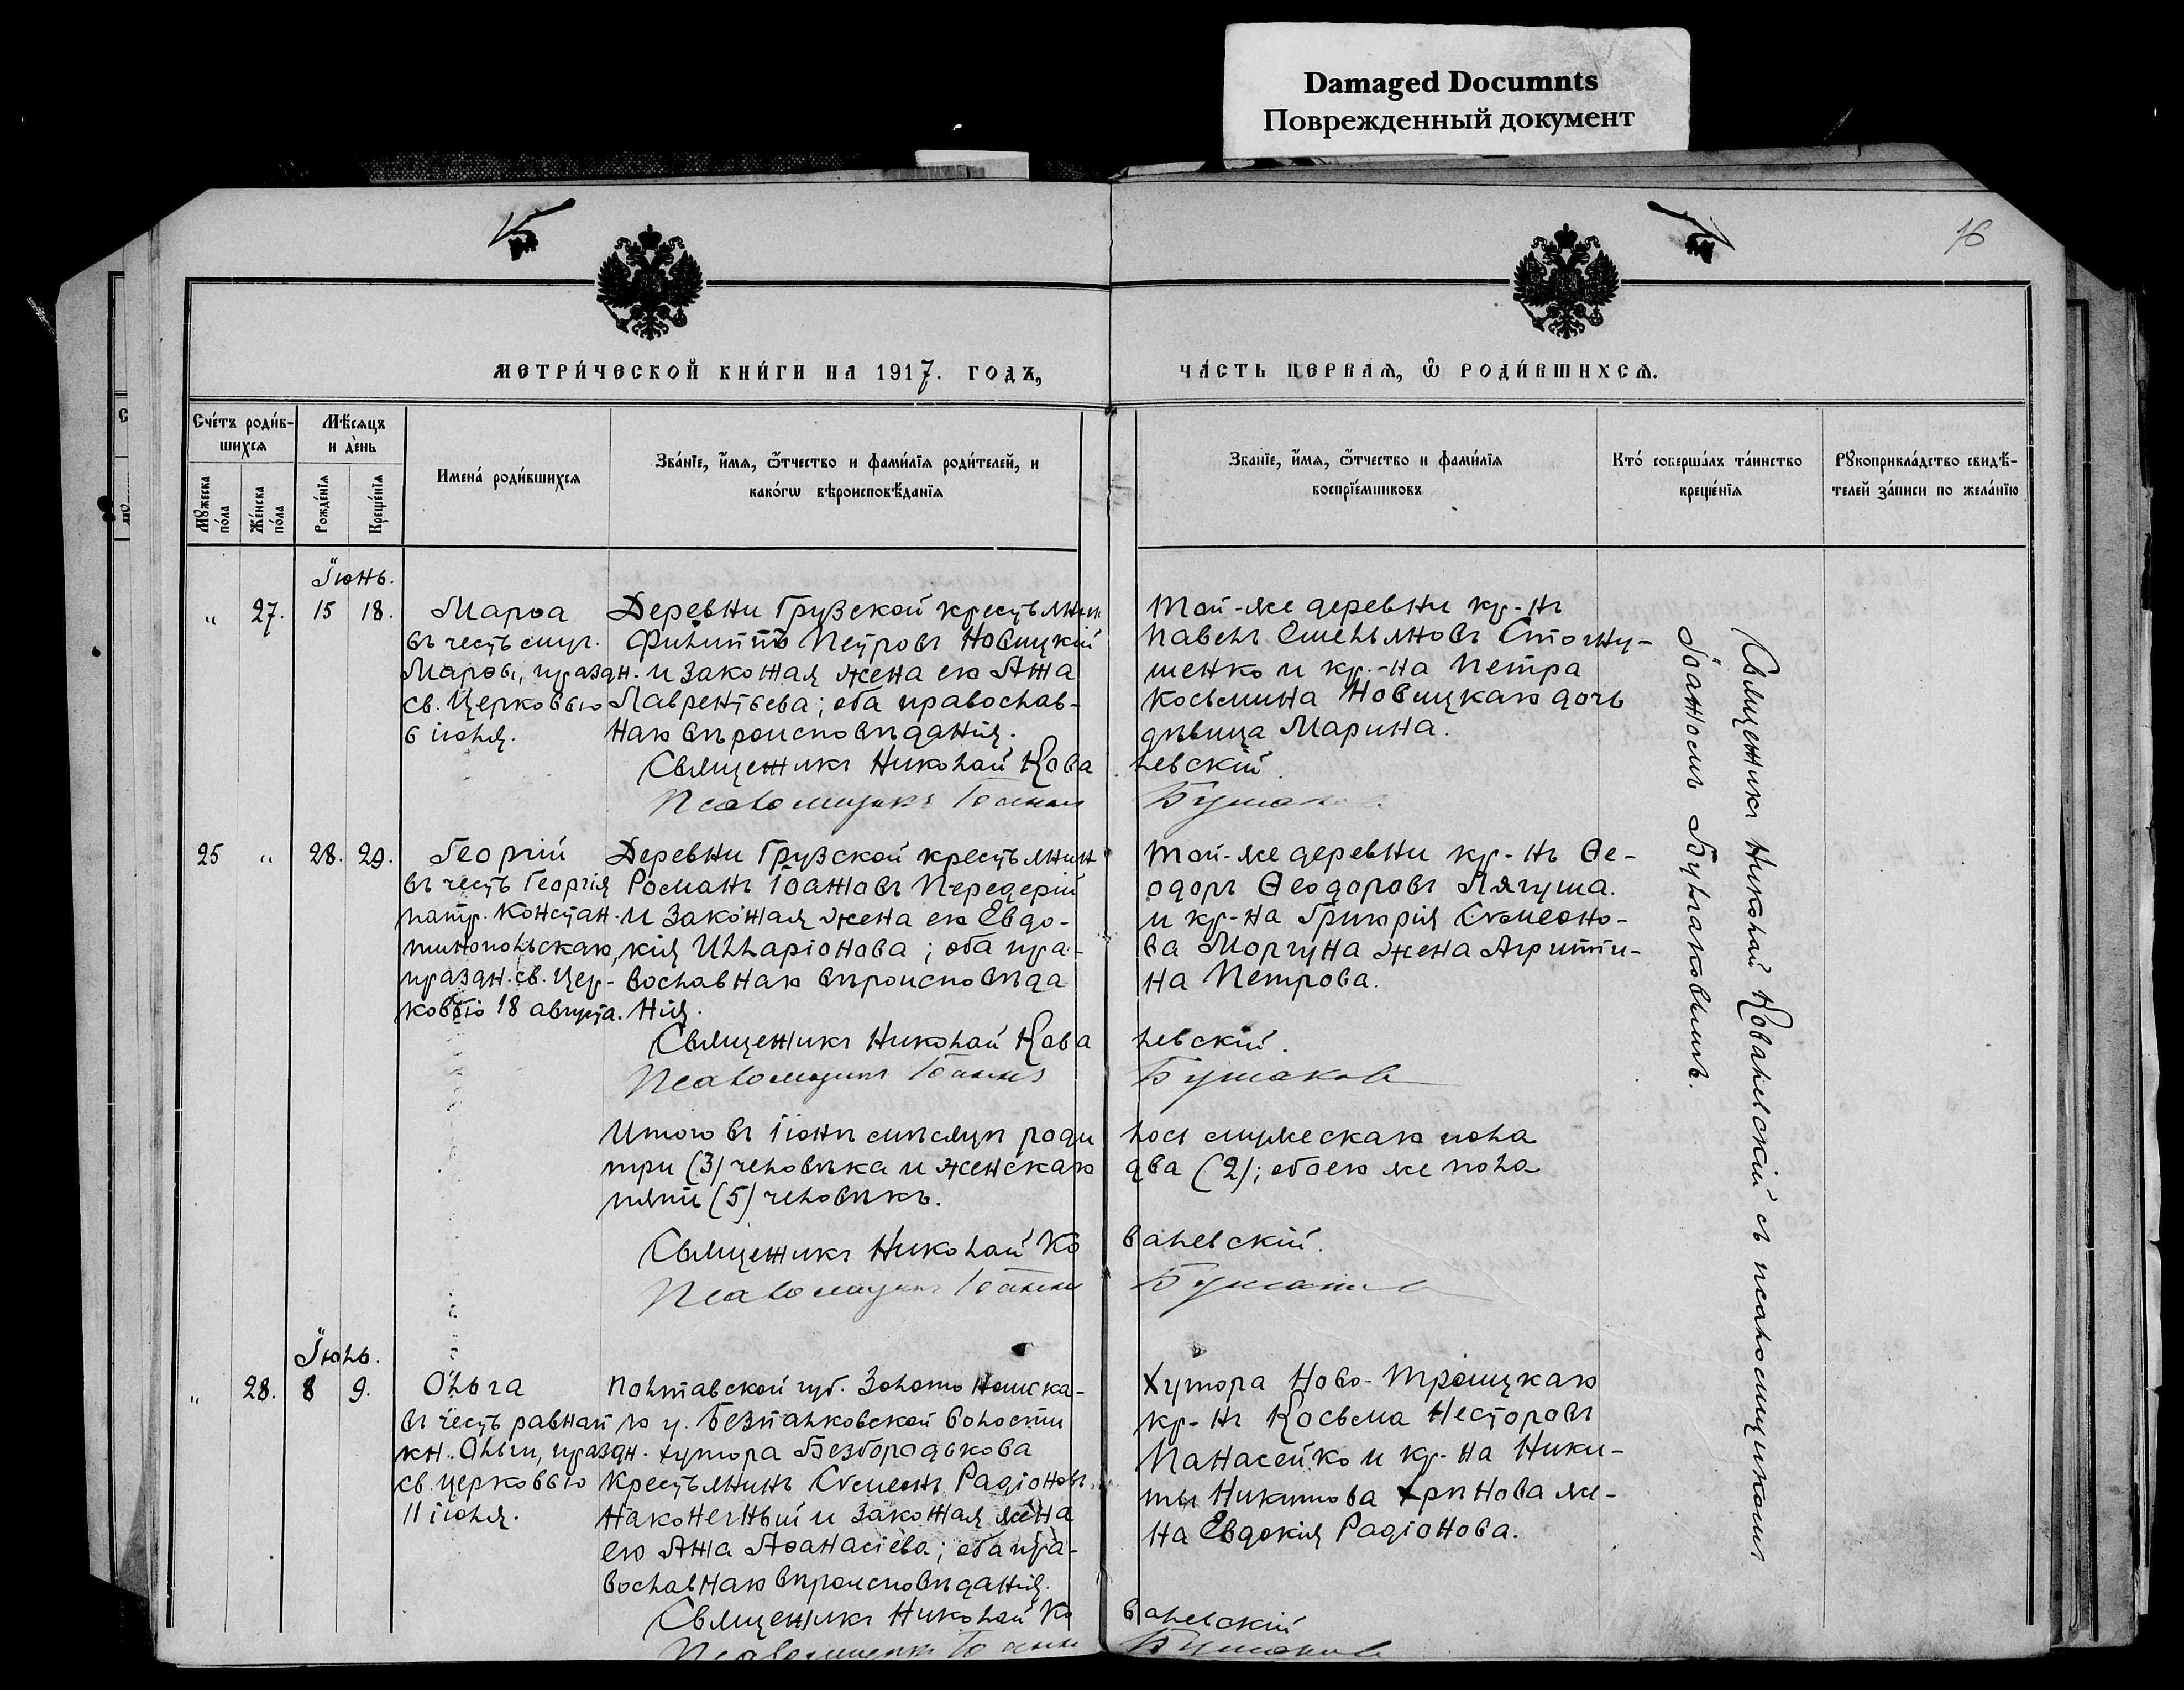 Damaged Documnts
Поврежденный документ
16
МЕТРИ́ЧЕСКОЙ КНИ́ГИ НА 1917. ГОДЪ,
ЧА́СТЬ ПЕРВАѦ, Ѿ РОДИ́ВШИХСѦ.
Сче́тъ роди́в-
шихсѧ
Мꙋ́жеска
по́ла
Же́нска
по́ла
Мѣ́сѧцъ
и де́нь
Рожде́нїѧ
Креще́нїѧ
Имена́ роди́вшихсѧ
Зва́нїе, и́мѧ, ѻ҆́тчество и фами́лїѧ роди́телей, и
како́гѡ вѣроисповѣ́данїѧ
Зва́нїе, и́мѧ, ѻ҆́тчество и фами́лїѧ
воспрїе́мниковъ
Кто́ соверша́лъ та́инство
креще́нїѧ
Рꙋкоприкла́дство свидѣ́-
телей за́писи по жела́нїю
Іюнь.
„ 27. 15 18.
Марѳа
въ честь муч.
Марѳы, празд‑
н. св. Церковью
6 іюля.
Деревни Грузской крестьянин
Филиппъ Петровъ Новицкій
и законная жена его Анна
Лаврентьева; оба православ-
наго вѣроисповѣданія.
Священникъ Николай Кова
Псаломщикъ Іоаннъ
Той-же деревни кр-нъ
Павелъ Емельяновъ
шенко и кр.-на Петра
Косьмина Новицкаго дочь
дѣвица Марина.
левскій.
25 „ 28. 29.
Георгій
въ честь Георгія
патр. Констан-
тинопольскаго,
праздн. св. Цер-
ковью 18 августа.
Деревни Грузской крестьянин
Романъ Іоанновъ Передерій
и законная жена его Евдо-
кія Илларіонова; оба пра-
вославнаго вѣроисповѣда
нія.
Священникъ Николай Кова
Псаломщикъ Іоаннъ
Той-же деревни кр-нъ Ѳе-
одоръ Ѳеодоровъ Лягуша.
и кр-на Григорія Сѵмеоно-
ва Моргуна жена Агриппи-
на Петрова.
левскій.
Итого въ Іюнѣ мѣсяцѣ роди
три (3) человѣка и женскаго
пять (5) человѣкъ.
Священникъ Николай Ко
Псаломщикъ Іоаннъ
лось мужескаго пола
два (2); обоего же пола
валевскій.
Іюль.
„ 28. 8 9.
Ольга
въ честь равноап
кн. Ольги, праздн.
св. церковью
11 іюля.
Полтавской губ. Золотоношска-
го у. Безпалковской волости
хутора Безбородькова
крестьянинъ Сѵмеонъ Радіоновъ
Наконечный и законная жена
его Анна Аѳанасіева; оба пра-
вославнаго вѣроисповѣданія.
Священникъ Николай Ко
Псаломщикъ Іоаннъ
Хутора Ново-Троицкаго
кр-нъ Косьма Несторовъ
Панасейко и кр-на Ники-
ты Никитова же-
на Евдокія Радіонова.
валевскій
Священникъ Николай Ковалевскій съ псаломщикомъ
Іоанномъ